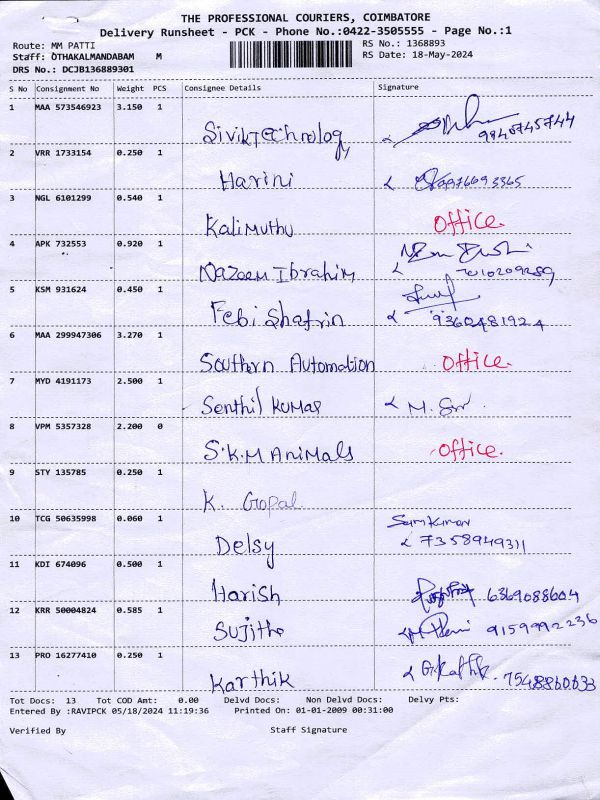 THE PROFESSIONAL COURIERS, COIMBATORE
Delivery Runsheet - PCK - Phone No.:0422-3505555 - Page No.:1
Route: MM PATTI RS No.: 1368893
Staff: OTHAKALMANDABAM M RS Date: 18-May-2024
DRS No.: DCJB136889301
S No Consignment No Weight PCS Consignee Details Signature
1 MAA 573546923 3.150 1
Siviktechnology 9840745744
2 VRR 1733154 0.250 1
Harini
3 NGL 6101299 0.540 1
Kalimuthu Office.
4 APK 732553 0.920 1
Nazeem Ibrahim 7010209289
5 KSM 931624 0.450 1
Febi Shafrin 9360481924
6 MAA 299947306 3.270 1
Southern Automation Office.
7 MYD 4191173 2.500 1
Senthil Kumar M.
8 VPM 5357328 2.200 0
S.K.M Animals Office.
9 STY 135785 0.250 1
K. Gopal
10 TCG 50635998 0.060 1
Delsy 7358949311
11 KDI 674096 0.500 1
Harish 6369088604
12 KRR 50004824 0.585 1
Sujitha 9159992236
13 PRO 16277410 0.250 1
Karthik 7548860633
Tot Docs: 13 Tot COD Amt: 0.00 Delvd Docs: Non Delvd Docs: Delvy Pts:
Entered By :RAVIPCK 05/18/2024 11:19:36 Printed On: 01-01-2009 00:31:00
Verified By Staff Signature